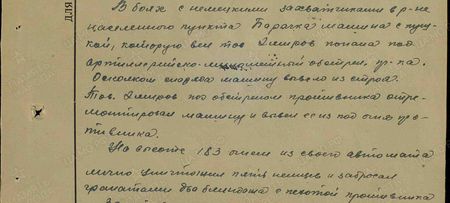 В боях с немецкими захватчиками в р-не
населенного пункта Барачка машина с пуш-
кой, которую вел тов Омиров попала под
артиллерийско-минометный обстрел пр-ка.
Осколком снаряда машину вывело из строя.
Тов. Омиров под обстрелом противника отре-
монтировал машину и вывел ее из под огня про-
тивника.
На высоте 183 огнем из своего автомата
лично уничтожил пять немцев и забросал
гранатами два блиндажа с пехотой противника